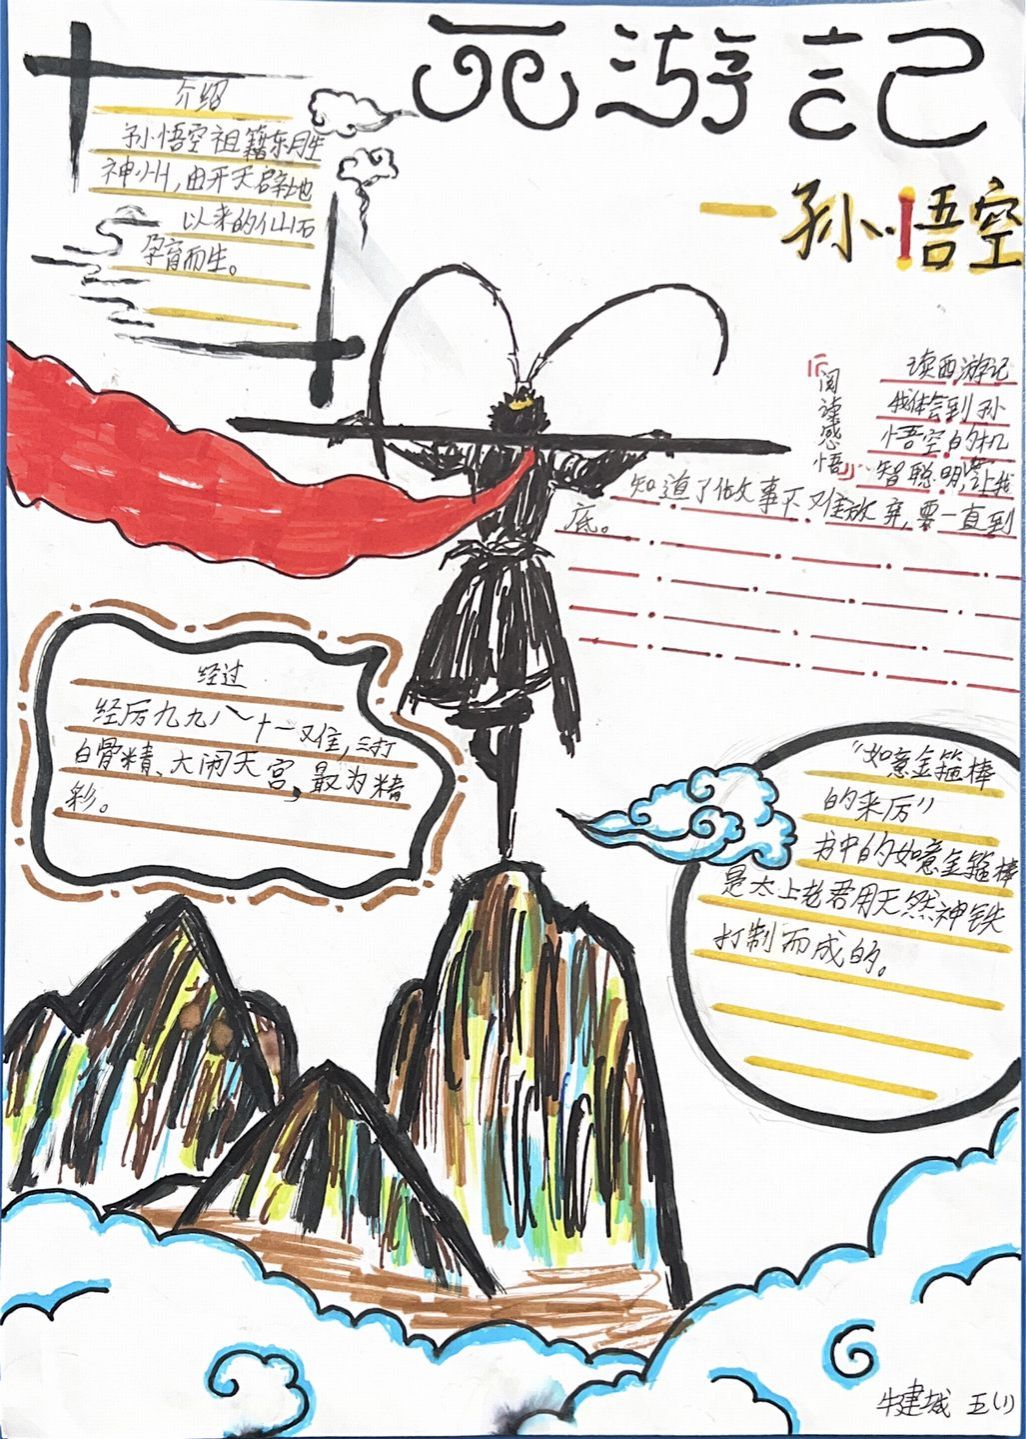 西游記
孙悟空
介绍
孙悟空祖籍东胜
神州,由开天辟地
以来的仙石
孕育而生。
阅读感悟
读西游记
我体会到孙
悟空的机
智聪明,让我
知道了做事不难放弃,要一直到
底。
经过
经历九九八十一难,三打
白骨精、大闹天宫,最为精
彩。
“如意金箍棒
的来厉”
书中的如意金箍棒
是太上老君用天然神铁
打制而成的。
牛建城 五(1)